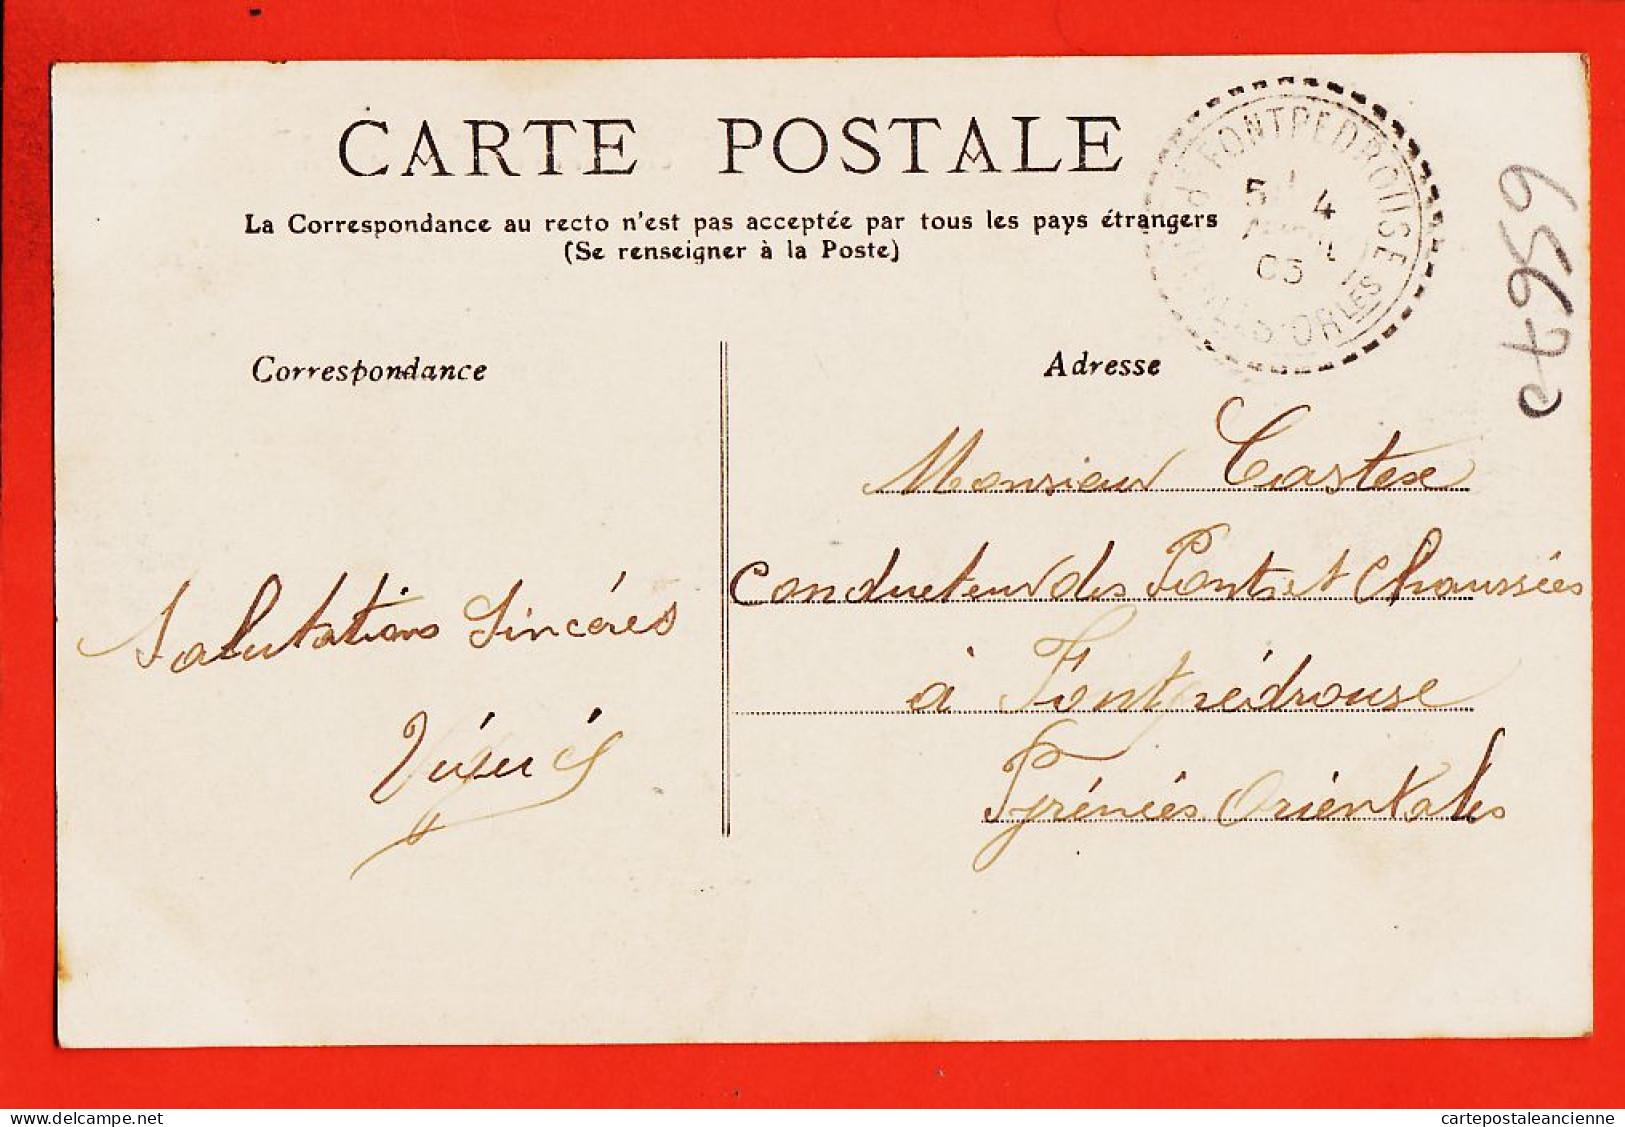 CARTE POSTALE
La Correspondance au recto n'est pas acceptée par tous les pays étrangers
(Se renseigner à la Poste)
FONTPEDROUSE
5 4
05
ORLES
Correspondance
Adresse
Monsieur Castex
Conducteur des Ponts et Chaussées
à Fontpédrouse
Pyrénées Orientales
Salutations Sincères
cartepostaleancienne